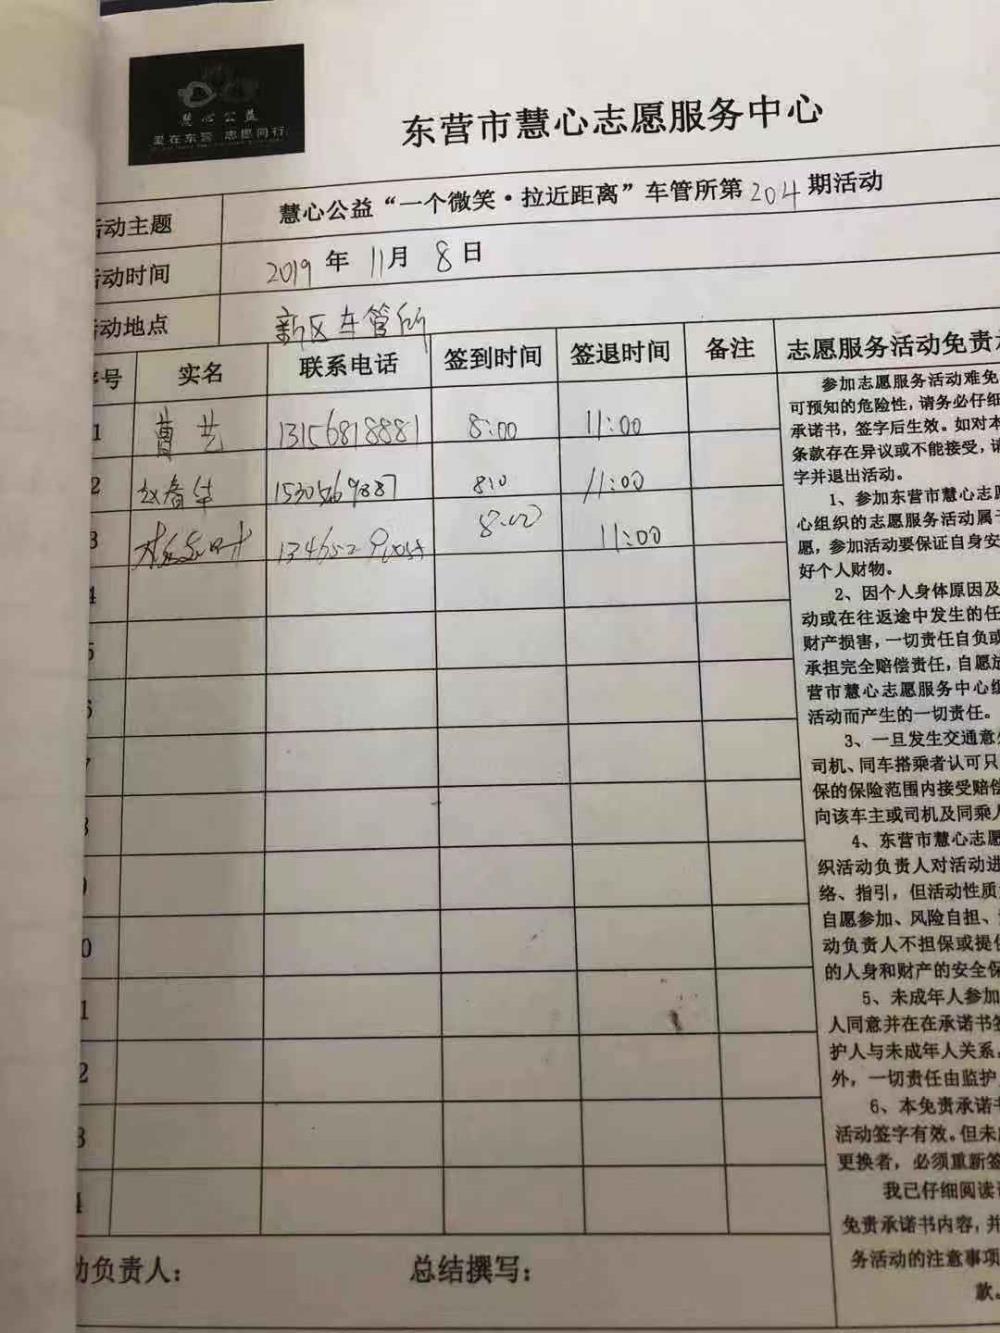 慧心公益
爱在东营 志愿同行
东营市慧心志愿服务中心
活动主题 慧心公益“一个微笑·拉近距离”车管所第204期活动
动时间 2019年11月8日
动地点 新区车管所
号 实名 联系电话 签到时间 签退时间 备注 志愿服务活动免责
1 曹艺 13156818881 8:00 11:00
2 赵春华 8:0 11:00
3 8:00 11:00
4
5
6
7
8
9
0
1
2
3
4
参加志愿服务活动难免
可预知的危险性，请务必仔细
承诺书，签字后生效。如对本
条款存在异议或不能接受，请
字并退出活动。
1、参加东营市慧心志愿
心组织的志愿服务活动属于
愿，参加活动要保证自身安
好个人财物。
2、因个人身体原因及
动或在往返途中发生的任
财产损害，一切责任自负或
承担完全赔偿责任，自愿放
营市慧心志愿服务中心组
活动而产生的一切责任。
3、一旦发生交通意外
司机、同车搭乘者认可只
保的保险范围内接受赔偿
向该车主或司机及同乘人
4、东营市慧心志愿
织活动负责人对活动进
络、指引，但活动性质
自愿参加、风险自担、
动负责人不担保或提供
的人身和财产的安全保
5、未成年人参加
人同意并在在承诺书签
护人与未成年人关系。
外，一切责任由监护
6、本免责承诺书
活动签字有效。但未
更换者，必须重新签
我已仔细阅读
免责承诺书内容，并
务活动的注意事项
款。
动负责人： 总结撰写：